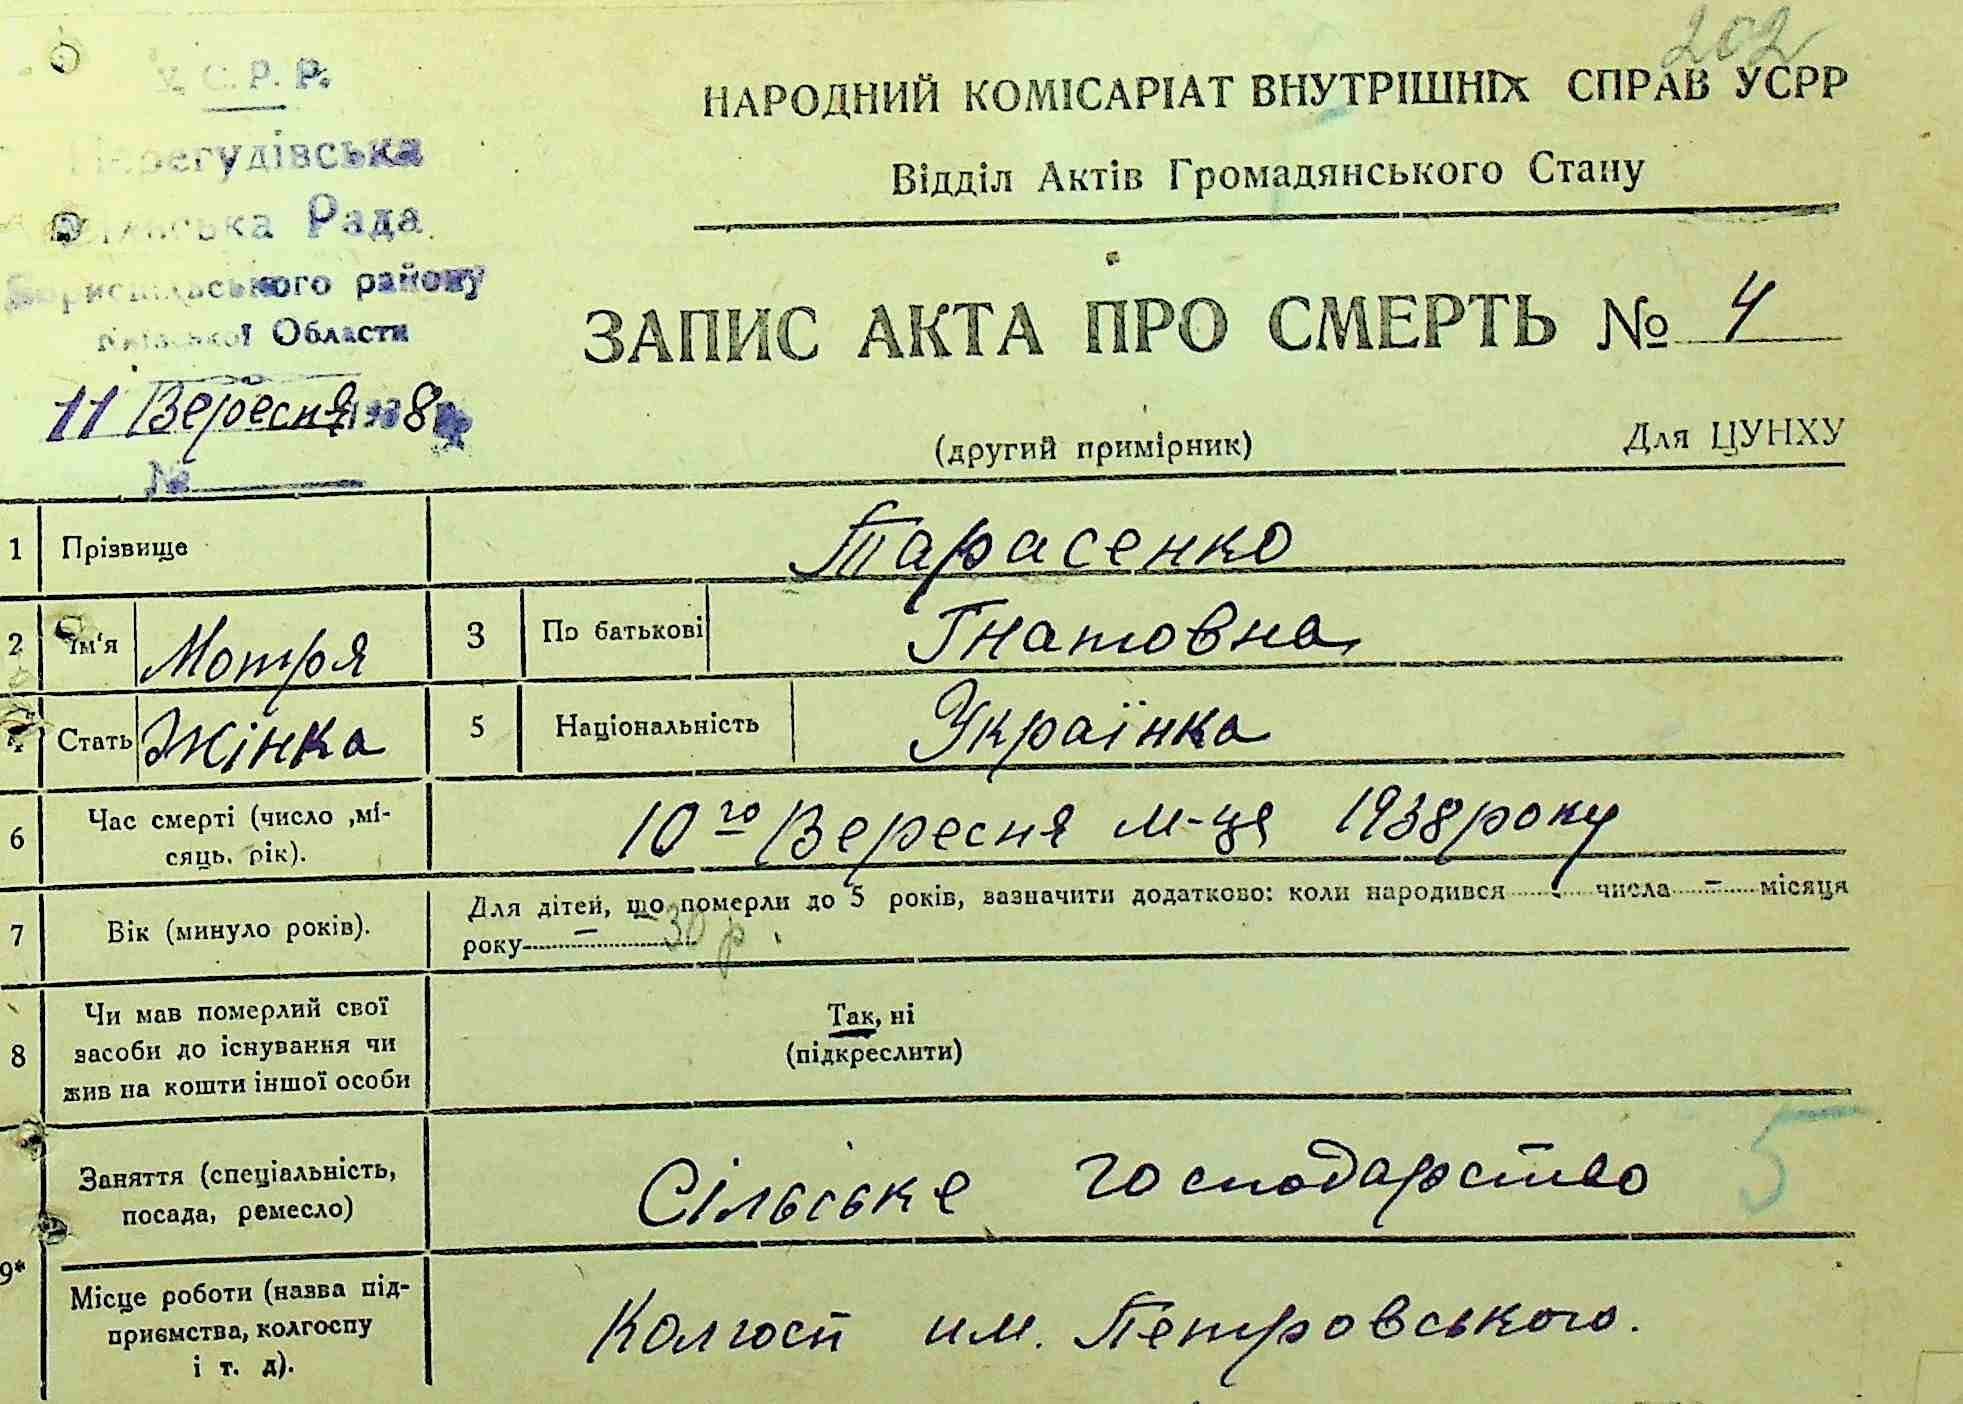 202
У. С. Р. Р.
НАРОДНИЙ КОМІСАРІАТ ВНУТРІШНІХ СПРАВ УСРР
Перегудівська
Відділ Актів Громадянського Стану
Сільська Рада
Бориспільського району
Київської Области
ЗАПИС АКТА ПРО СМЕРТЬ № 4
11 Вересня 1938 р.
(другий примірник) Для ЦУНХУ
№
1 Прізвище Тарасенко
2 Ім'я Мотря 3 По батькові Гнатовна
4 Стать Жінка 5 Національність Українка
6 Час смерті (число ,мі-
сяць, рік). 10го Вересня м-ця 1938 року
7 Вік (минуло років). Для дітей, що померли до 5 років, зазначити додатково: коли народився - числа - місяця
року - 30 р.
8 Чи мав померлий свої
засоби до існування чи
жив на кошти іншої особи
Так, ні
(підкреслити)
9* Заняття (спеціальність,
посада, ремесло) Сільське господарство 5
Місце роботи (назва під-
приємства, колгоспу
і т. д). Колгосп им. Петровського.